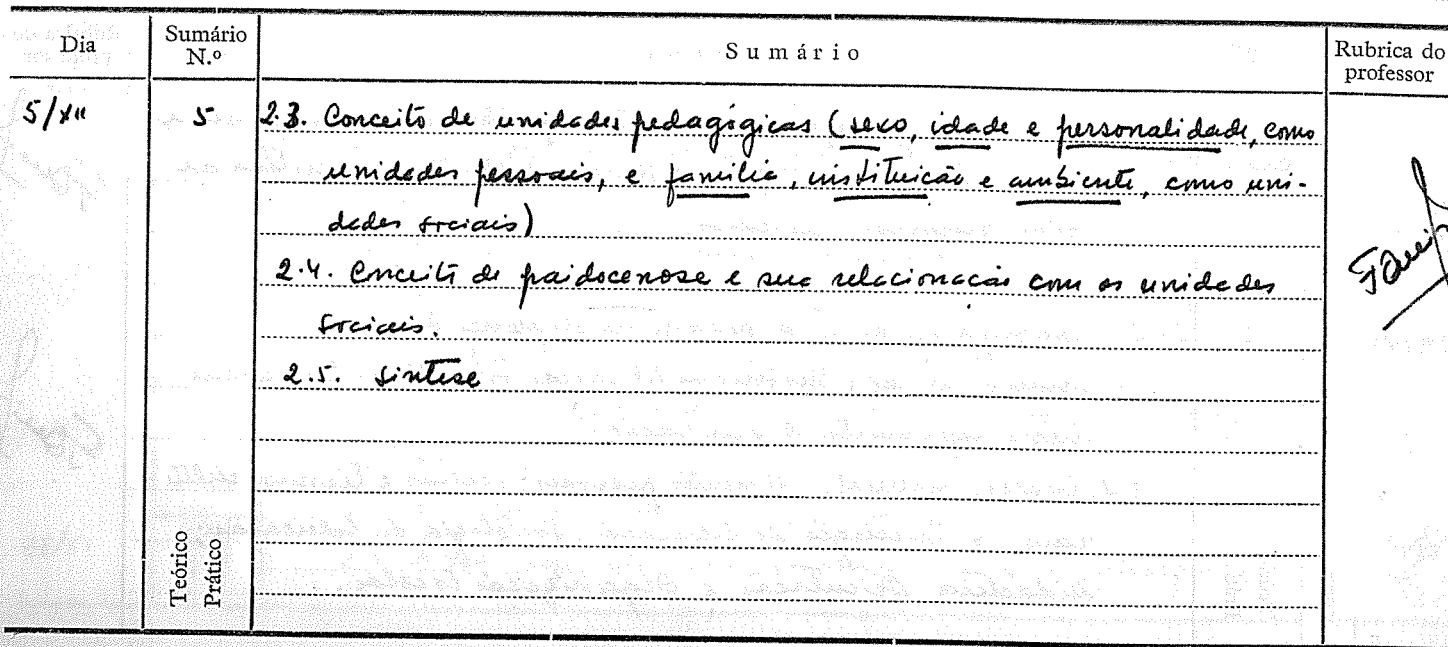 Dia Sumário N.º Sumário Rubrica do professor
5/XII 5 2.3. Conceito de unidades pedagógicas (sexo, idade e personalidade, como
unidades pessoais, e família, instituição e ambiente, como uni-
dades sociais)
2.4. Conceito de paidocenose e sua relacionação com as unidades
sociais.
2.5. Síntese
Teórico
Prático